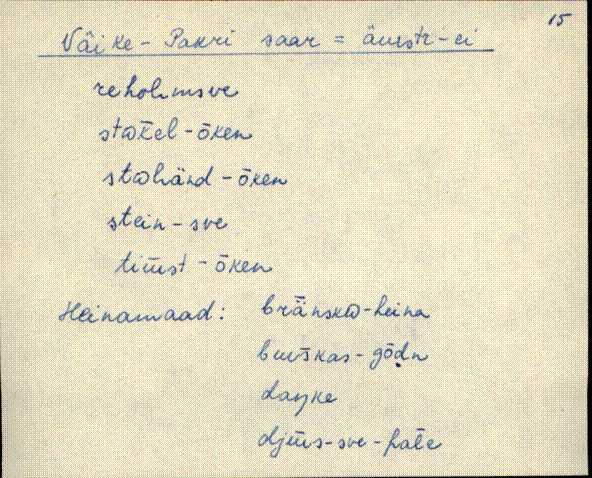 15
Väike-Pakri saar = äustr-ei
reholmsve
statel-ōken
stahänd-ōken
stein-sve
tīūst-ōken
Heinamaad:
bränska-heina
buskas-gōdn
daŋke
djūs-sve-hate